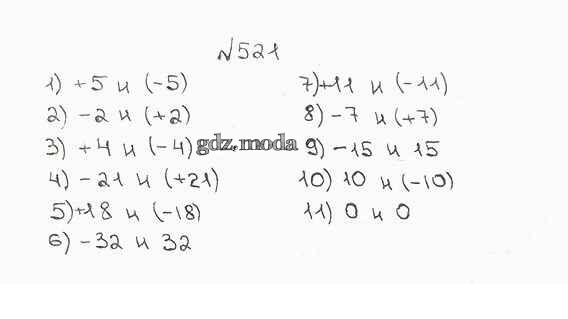 №521
1) +5 и (-5)
2) -2 и (+2)
3) +4 и (-4)
4) -21 и (+21)
5) +18 и (-18)
6) -32 и 32
7) +11 и (-11)
8) -7 и (+7)
9) -15 и 15
10) 10 и (-10)
11) 0 и 0
gdz.moda